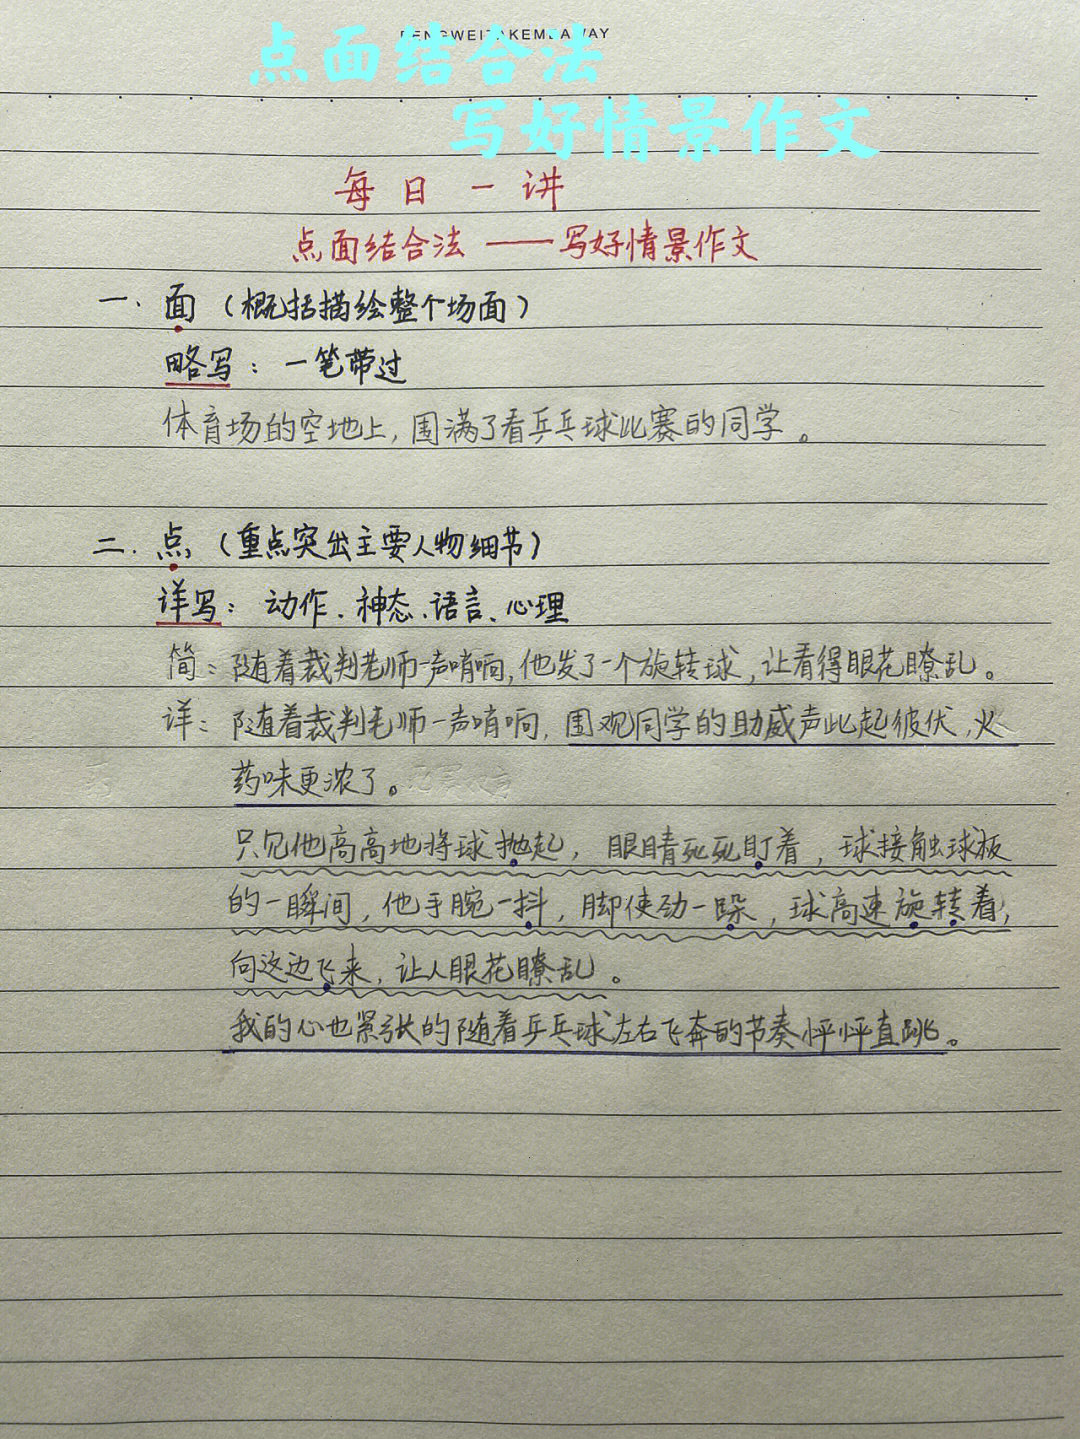 点面结合法
写好情景作文
每日一讲
点面结合法——写好情景作文
一.面（概括描绘整个场面）
略写：一笔带过
体育场的空地上，围满了看乒乓球比赛的同学。
二.点（重点突出主要人物细节）
详写：动作、神态、语言、心理
简：随着裁判老师一声哨响，他发了一个旋转球，让看得眼花瞭乱。
详：随着裁判老师一声哨响，围观同学的助威声此起彼伏，火
药味更浓了。
只见他高高地将球抛起，眼睛死死盯着，球接触球板
的一瞬间，他手腕一抖，脚使劲一跺，球高速旋转着，
向这边飞来，让人眼花瞭乱。
我的心也紧张的随着乒乓球左右飞奔的节奏怦怦直跳。